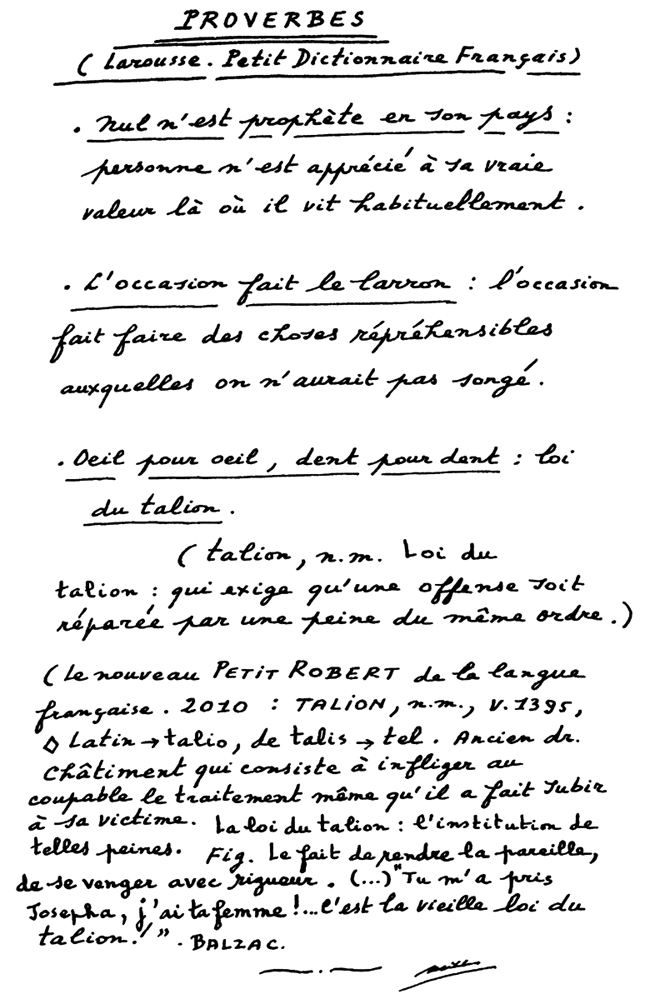 PROVERBES
(Larousse. Petit Dictionnaire Français)
. Nul n'est prophète en son pays :
personne n'est apprécié à sa vraie
valeur là où il vit habituellement .
. L'occasion fait le larron : l'occasion
fait faire des choses répréhensibles
auxquelles on n'aurait pas songé .
. Oeil pour oeil, dent pour dent : loi
du talion .
( talion, n.m. Loi du
talion : qui exige qu'une offense soit
réparée par une peine du même ordre .)
( Le nouveau PETIT ROBERT de la langue
française . 2010 : TALION, n.m., V. 1395,
◊ Latin → talio, de talis → tel . Ancien dr.
Châtiment qui consiste à infliger au
coupable le traitement même qu'il a fait subir
à sa victime. La loi du talion : l'institution de
telles peines. Fig. Le fait de rendre la pareille,
de se venger avec rigueur . (...) "Tu m'a pris
Josepha, j'ai ta femme !... C'est la vieille loi du
talion ! " . BALZAC.